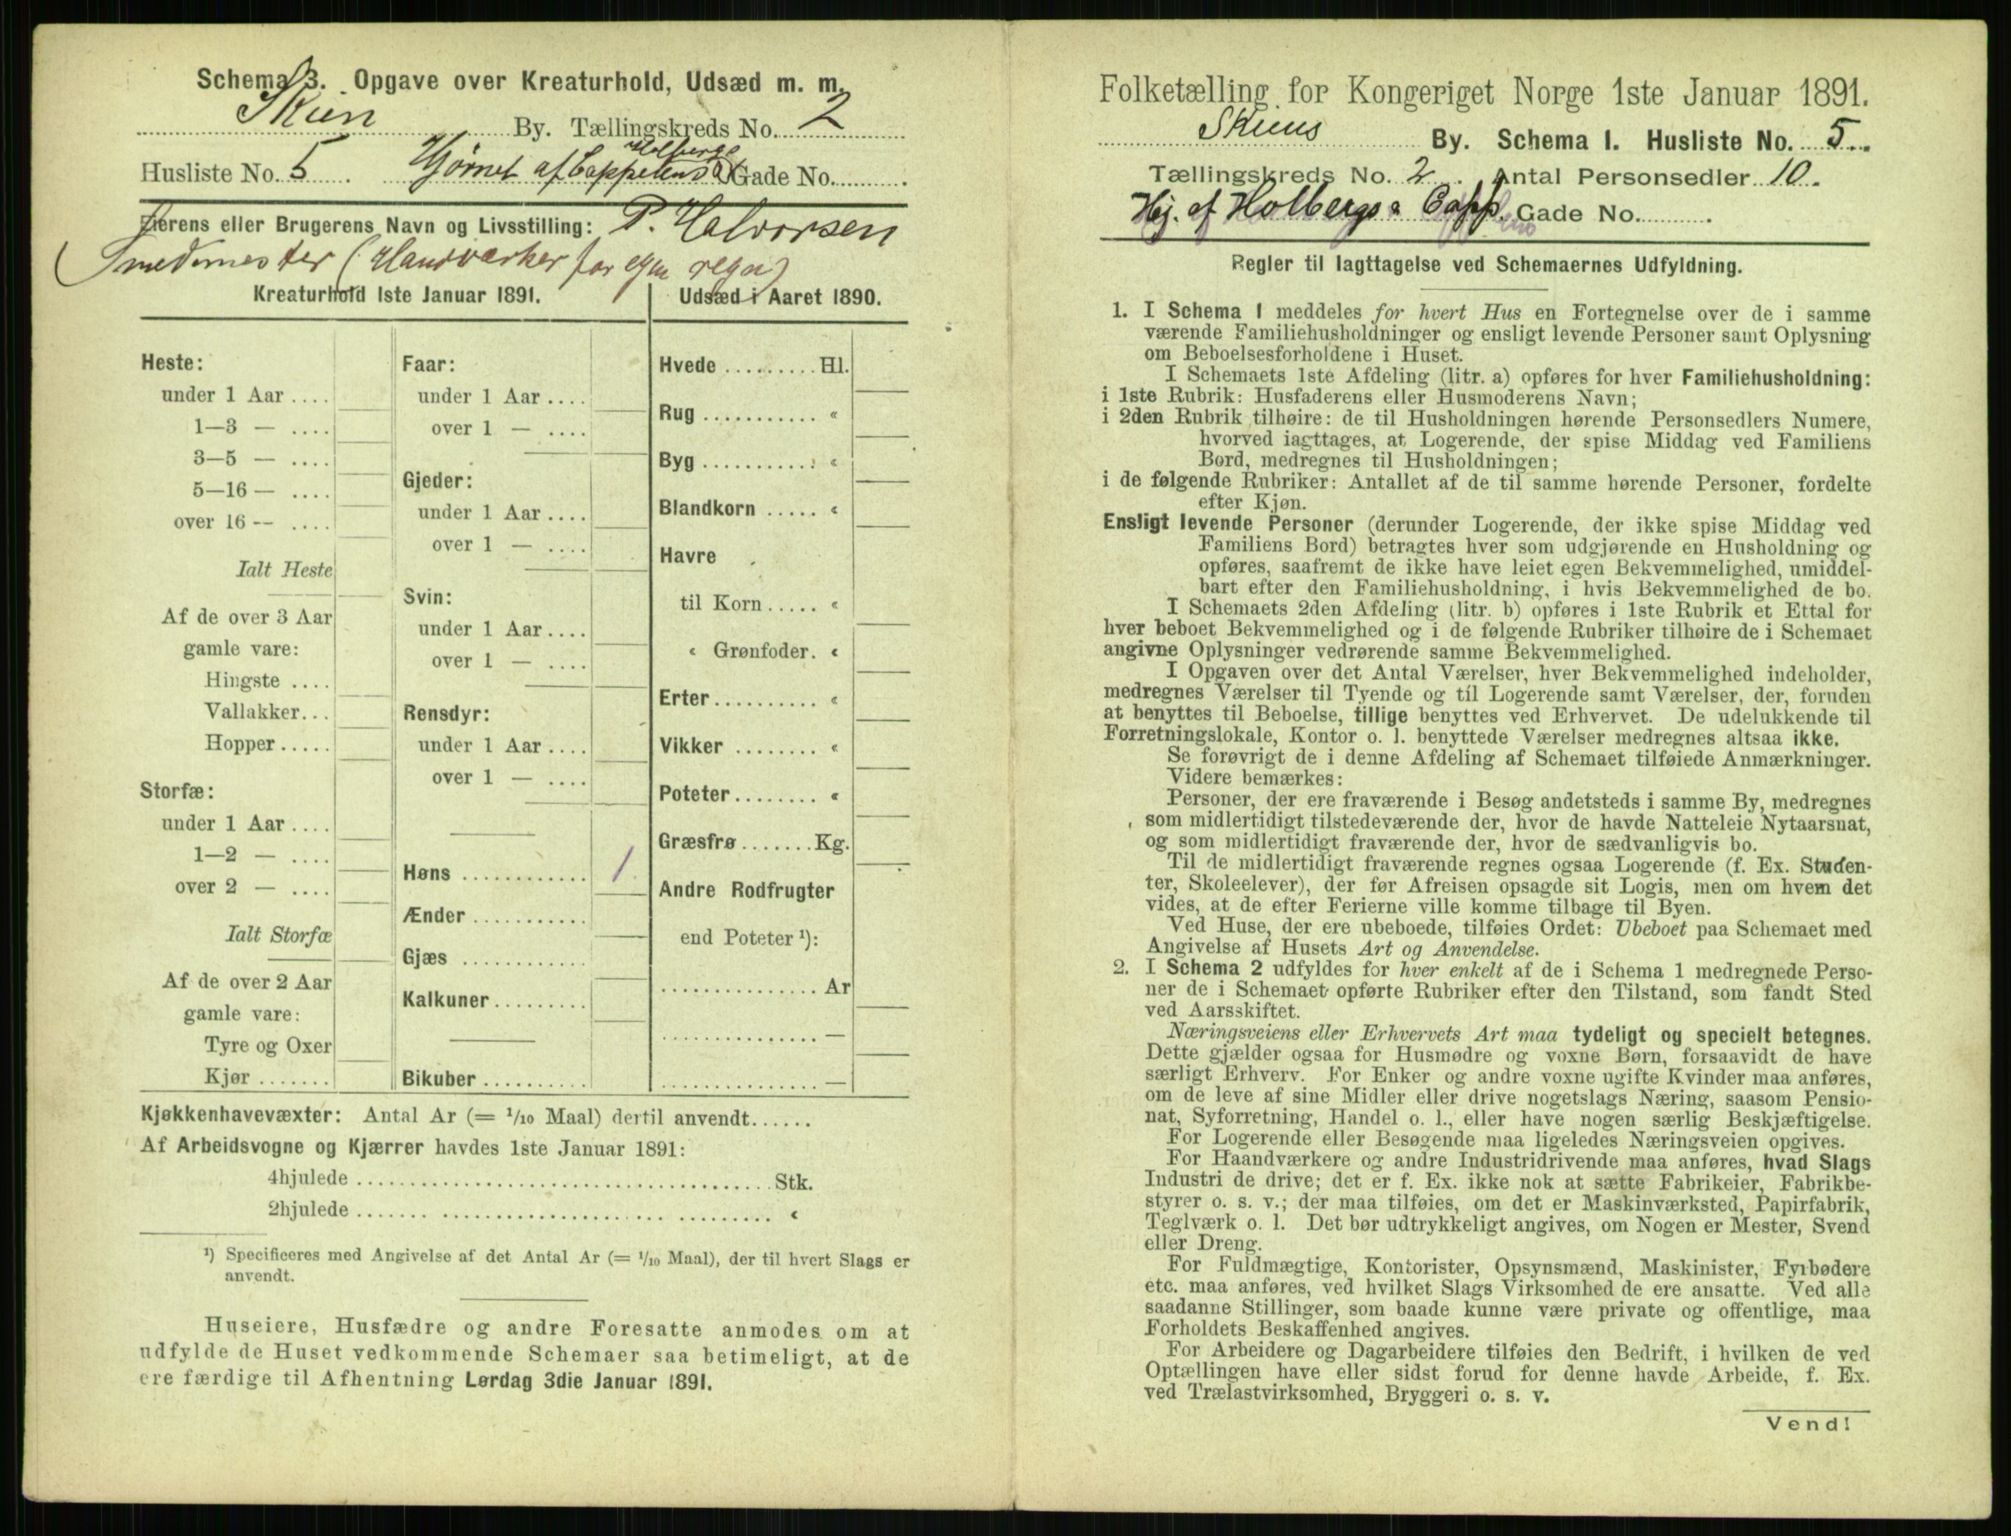 Schema 3. Opgave over Kreaturhold, Udsæd m. m.
Skien By. Tællingskreds No. 2
Holbergs
Husliste No. 5 Hjørnet af Cappelens & Gade No.
Eierens eller Brugerens Navn og Livsstilling: P. Halvorsen
Smedemester (Handværker for egen regn)
Kreaturhold 1ste Januar 1891.
Heste:
under 1 Aar ....
1—3 — ....
3—5 — ....
5—16 — ....
over 16 — ....
Ialt Heste
Af de over 3 Aar
gamle vare:
Hingste ....
Vallakker...
Hopper.....
Storfæ:
under 1 Aar ....
1—2 — ....
over 2 — ....
Ialt Storfæ
Af de over 2 Aar
gamle vare:
Tyre og Oxer
Kjør .......
Faar:
under 1 Aar ....
over 1 — ....
Gjeder:
under 1 Aar ....
over 1 — ....
Svin:
under 1 Aar ....
over 1 — ....
Rensdyr:
under 1 Aar ....
over 1 — ....
Høns ............ 1.
Ænder ...........
Gjæs ............
Kalkuner.........
Bikuber ..........
Udsæd i Aaret 1890.
Hvede ......... Hl.
Rug ........... «
Byg ........... «
Blandkorn ..... «
Havre
til Korn..... «
« Grønfoder. «
Erter.......... «
Vikker ........ «
Poteter........ «
Græsfrø....... Kg.
Andre Rodfrugter
end Poteter ¹):
............... Ar
............... —
............... —
Kjøkkenhavevæxter: Antal Ar (= 1/10 Maal) dertil anvendt......
Af Arbeidsvogne og Kjærrer havdes 1ste Januar 1891:
4hjulede ........................................ Stk.
2hjulede ........................................ «
¹) Specificeres med Angivelse af det Antal Ar (= 1/10 Maal), der til hvert Slags er
anvendt.
Huseiere, Husfædre og andre Foresatte anmodes om at
udfylde de Huset vedkommende Schemaer saa betimeligt, at de
ere færdige til Afhentning Lørdag 3die Januar 1891.
Folketælling for Kongeriget Norge 1ste Januar 1891.
Skiens By. Schema I. Husliste No. 5
Tællingskreds No. 2. Antal Personsedler 10.
Hj. af Holbergs & Capp. Gade No.
Regler til Iagttagelse ved Schemaernes Udfyldning.
1. I Schema 1 meddeles for hvert Hus en Fortegnelse over de i samme
værende Familiehusholdninger og ensligt levende Personer samt Oplysning
om Beboelsesforholdene i Huset.
I Schemaets 1ste Afdeling (litr. a) opføres for hver Familiehusholdning:
i 1ste Rubrik: Husfaderens eller Husmoderens Navn;
i 2den Rubrik tilhøire: de til Husholdningen hørende Personsedlers Numere,
hvorved iagttages, at Logerende, der spise Middag ved Familiens
Bord, medregnes til Husholdningen;
i de følgende Rubriker: Antallet af de til samme hørende Personer, fordelte
efter Kjøn.
Ensligt levende Personer (derunder Logerende, der ikke spise Middag ved
Familiens Bord) betragtes hver som udgjørende en Husholdning og
opføres, saafremt de ikke have leiet egen Bekvemmelighed, umiddel-
bart efter den Familiehusholdning, i hvis Bekvemmelighed de bo.
I Schemaets 2den Afdeling (litr. b) opføres i 1ste Rubrik et Ettal for
hver beboet Bekvemmelighed og i de følgende Rubriker tilhøire de i Schemaet
angivne Oplysninger vedrørende samme Bekvemmelighed.
I Opgaven over det Antal Værelser, hver Bekvemmelighed indeholder,
medregnes Værelser til Tyende og til Logerende samt Værelser, der, foruden
at benyttes til Beboelse, tillige benyttes ved Erhvervet. De udelukkende til
Forretningslokale, Kontor o. l. benyttede Værelser medregnes altsaa ikke.
Se forøvrigt de i denne Afdeling af Schemaet tilføiede Anmærkninger.
Videre bemærkes:
Personer, der ere fraværende i Besøg andetsteds i samme By, medregnes
som midlertidigt tilstedeværende der, hvor de havde Natteleie Nytaarsnat,
og som midlertidigt fraværende der, hvor de sædvanligvis bo.
Til de midlertidigt fraværende regnes ogsaa Logerende (f. Ex. Studen-
ter, Skoleelever), der før Afreisen opsagde sit Logis, men om hvem det
vides, at de efter Ferierne ville komme tilbage til Byen.
Ved Huse, der ere ubeboede, tilføies Ordet: Ubeboet paa Schemaet med
Angivelse af Husets Art og Anvendelse.
2. I Schema 2 udfyldes for hver enkelt af de i Schema 1 medregnede Perso-
ner de i Schemaet opførte Rubriker efter den Tilstand, som fandt Sted
ved Aarsskiftet.
Næringsveiens eller Erhvervets Art maa tydeligt og specielt betegnes.
Dette gjælder ogsaa for Husmødre og voxne Børn, forsaavidt de have
særligt Erhverv. For Enker og andre voxne ugifte Kvinder maa anføres,
om de leve af sine Midler eller drive nogetslags Næring, saasom Pensio-
nat, Syforretning, Handel o. l., eller have nogen særlig Beskjæftigelse.
For Logerende eller Besøgende maa ligeledes Næringsveien opgives.
For Haandværkere og andre Industridrivende maa anføres, hvad Slags
Industri de drive; det er f. Ex. ikke nok at sætte Fabrikeier, Fabrikbe-
styrer o. s. v.; der maa tilføies, om det er Maskinværksted, Papirfabrik,
Teglværk o. l. Det bør udtrykkeligt angives, om Nogen er Mester, Svend
eller Dreng.
For Fuldmægtige, Kontorister, Opsynsmænd, Maskinister, Fyrbødere
etc. maa anføres, ved hvilket Slags Virksomhed de ere ansatte. Ved alle
saadanne Stillinger, som baade kunne være private og offentlige, maa
Forholdets Beskaffenhed angives.
For Arbeidere og Dagarbeidere tilføies den Bedrift, i hvilken de ved
Optællingen have eller sidst forud for denne havde Arbeide, f. Ex.
ved Trælastvirksomhed, Bryggeri o. s. v.
Vend!